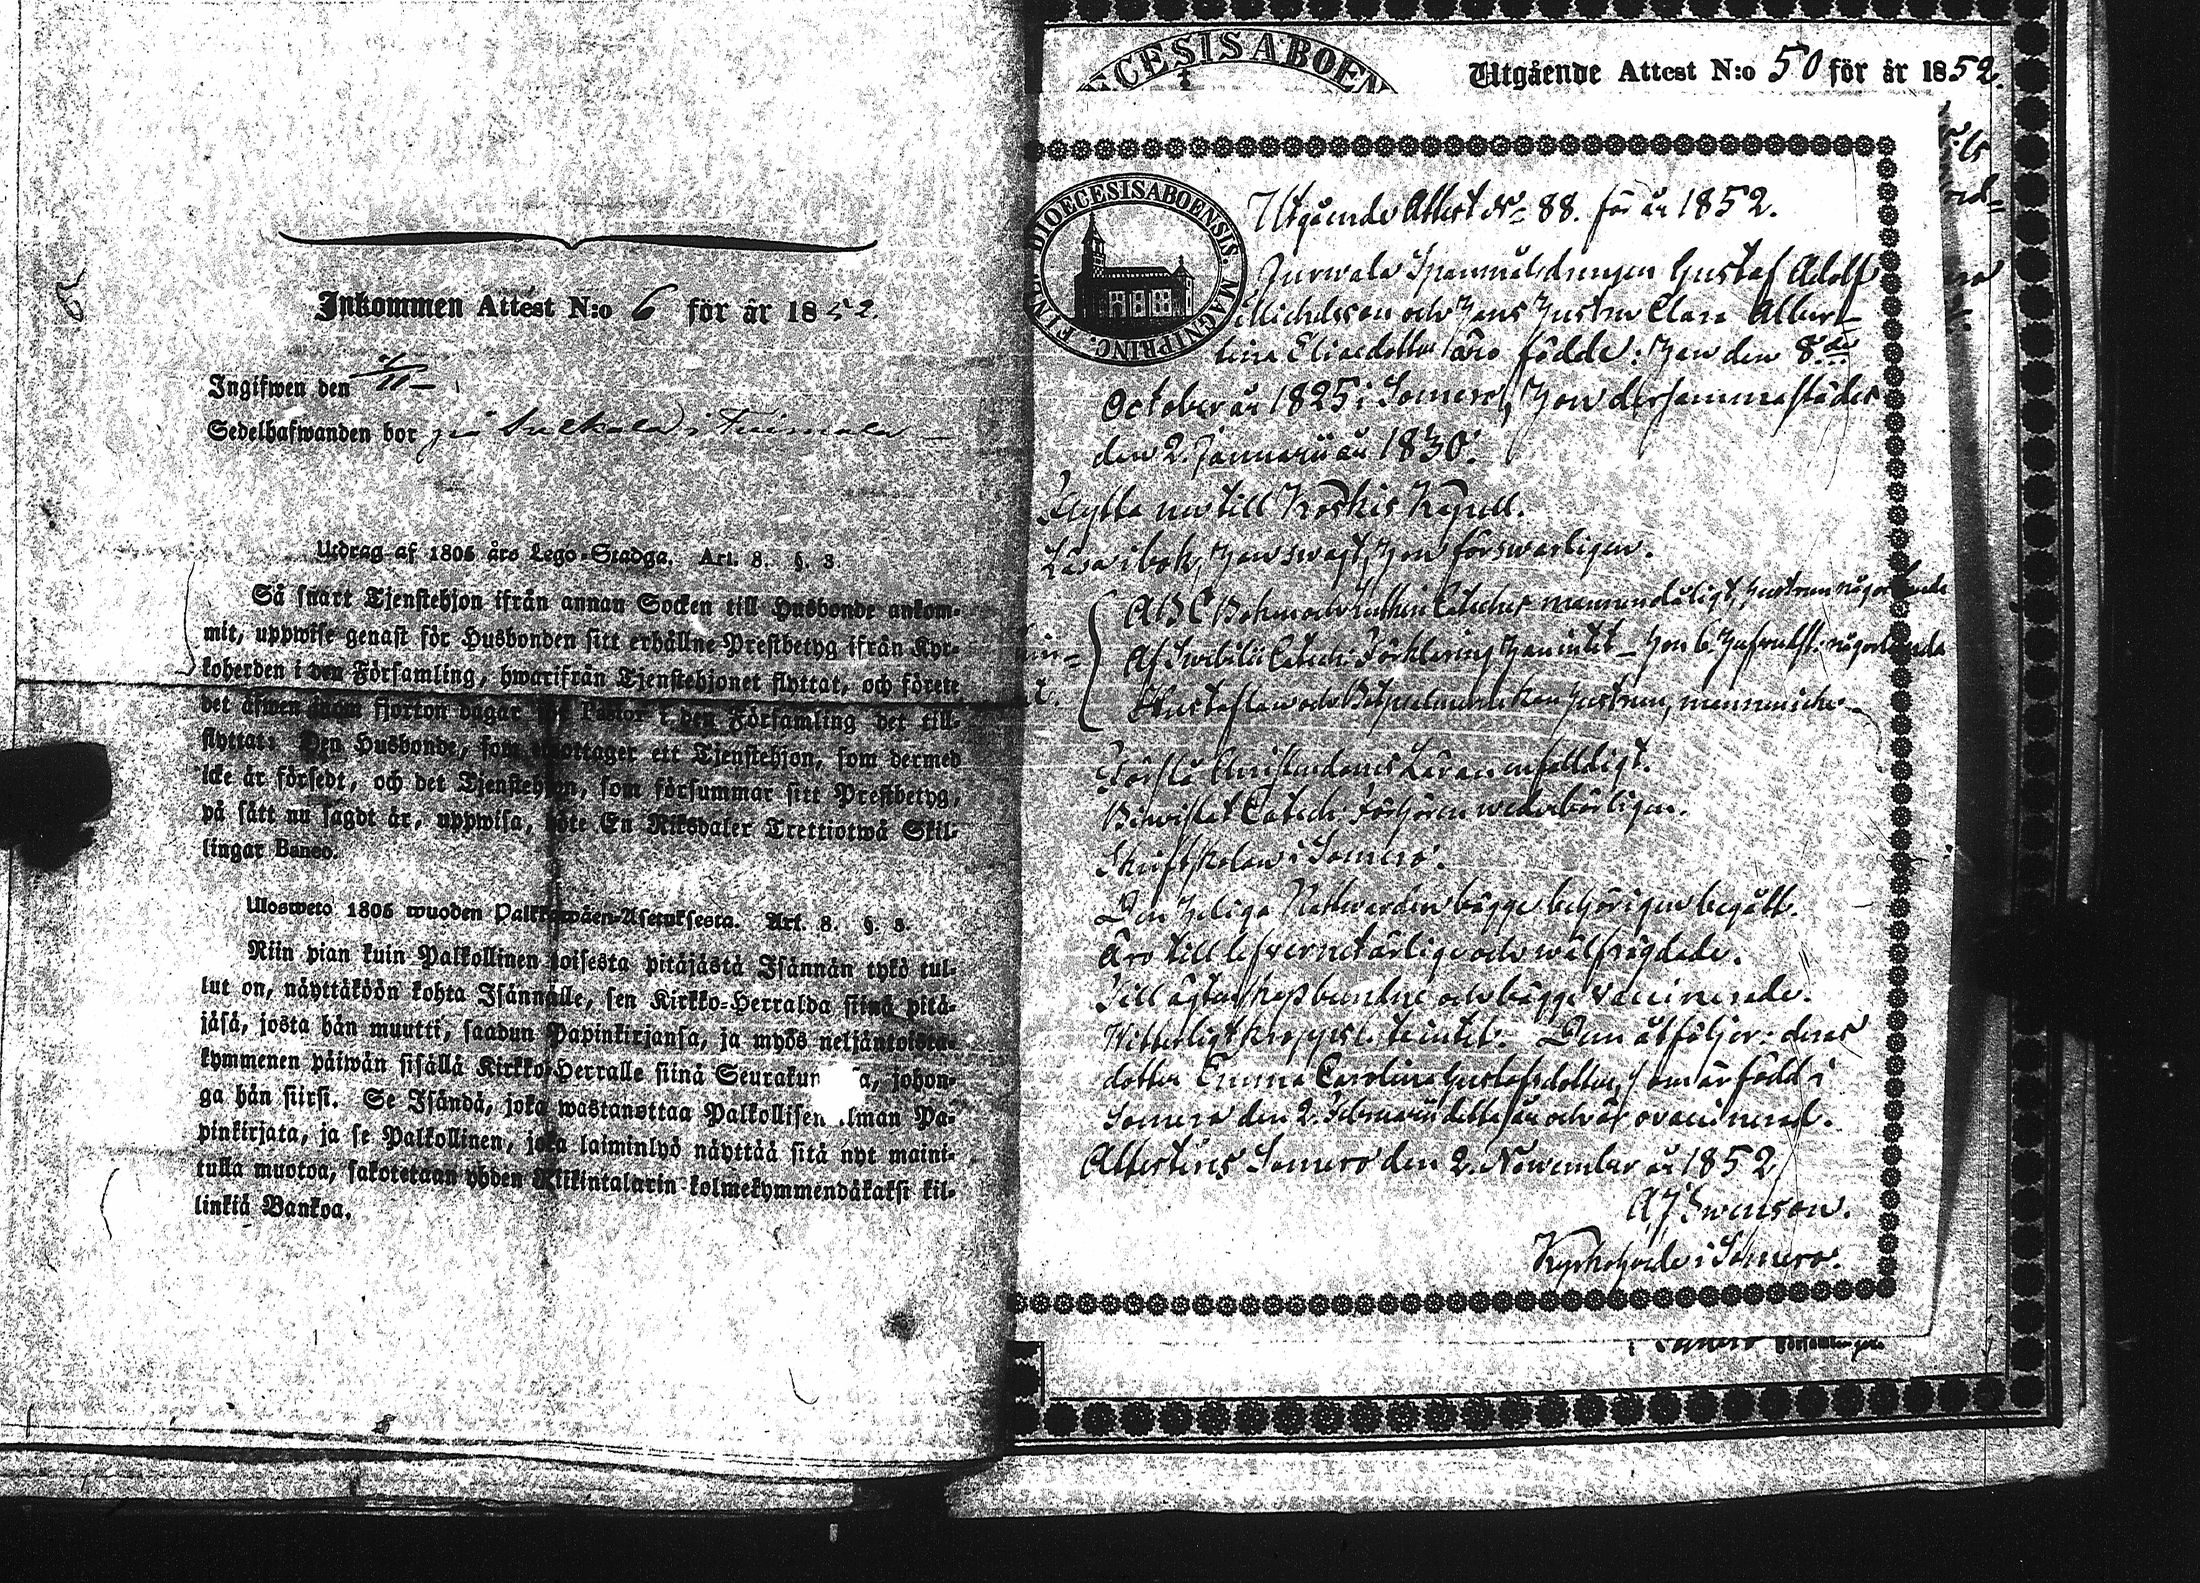 Inkommen Attest N:o 6 för år 1852.
Ingifwen den /11
Sedelhafwanden bor på i
Utdrag af 1805 års Lego-Stadga. Art. 8. §. 3.
Så snart Tjenstehjon ifrån annan Socken till Husbonde ankom-
mit, uppwise genast för Husbonden sitt erhållne Prestbetyg ifrån Kyr-
koherden i den Församling, hwarifrån Tjenstehjonet flyttat, och förete
det äfwen inom fjorton dagar för Pastor i den Församling det till-
flyttat: Den Husbonde, som emottager ett Tjenstehjon, som dermed
icke är försedt, och det Tjenstehjon, som försummar sitt Prestbetyg,
på sätt nu sagdt är, uppwisa, böte En Riksdaler Trettiotwå Skil-
lingar Banco.
Ulosweto 1805 wuoden Palkkawäen-Asetuksesta. Art. 8. §. 3.
Niin pian kuin Palkollinen toisesta pitäjästä Isännän tykö tul-
lut on, näyttäköön kohta Isännälle, sen Kirkko-Herralda siinä pitä-
jäsä, josta hän muutti, saadun Papinkirjansa, ja myös neljäntoista-
kymmenen päiwän sisällä Kirkko-Herralle siinä Seurakun a, johon-
ga hän siirsi. Se Isändä, joka wastanottaa Palkollisen ilman Pa-
pinkirjata, ja se Palkollinen, joka laiminlyö näyttää sitä nyt maini-
tulla muotoa, sakotetaan yhden Riikintalarin kolmekymmendäkaksi kil-
linkiä Bankoa.
CESISABOEN
Utgående Attest N:o 50 för år 1852.
DIOECESISABOENSIS. MAGNIPRINC. FINL.
Utgående Attest No 88. för år 1852.
Gustaf Adolf
Michelsson och Hans Hustru Clara Alber-
tina Eliaedotter äro födde: Han den 8de
October år 1825 i Somero, Hon dersammastädes
den 2. Januarii år 1830.
Flytta nu till Koskis Kapell.
Läsa i bok, Han swagt, Hon förswarligen.
ABC Boken och Lutheri Cateches mannen dåligt, hustrun någorlunda
Af Swebilii Catech: Förklaring Han intet – Hon 6. någorlunda
Hustaflan och Botpsalmerne kan hustrun, mannen icke
Förstå Christendoms Läran enfalldigt.
Bewistat Catech: Förhören wederbörligen.
Skriftskolan i Somero.
Den Heliga Nattwarden bägge behörigen begått.
Äro till lefvernet ärlige och wälfrägdade.
Till ägtenskap bundne och bägge vaccinerade.
Witterligt kroppsl. te intet. Dem åtföljer: deras
dotter Emma Carolina Gustafsdotter, som är född i
Somero den 2. Februarii detta år och är ovaccinerad.
Attesteres Somero den 2. November år 1852
AJ Swenson.
Kyrkoherde i Somero.
i Somero Församlingar.